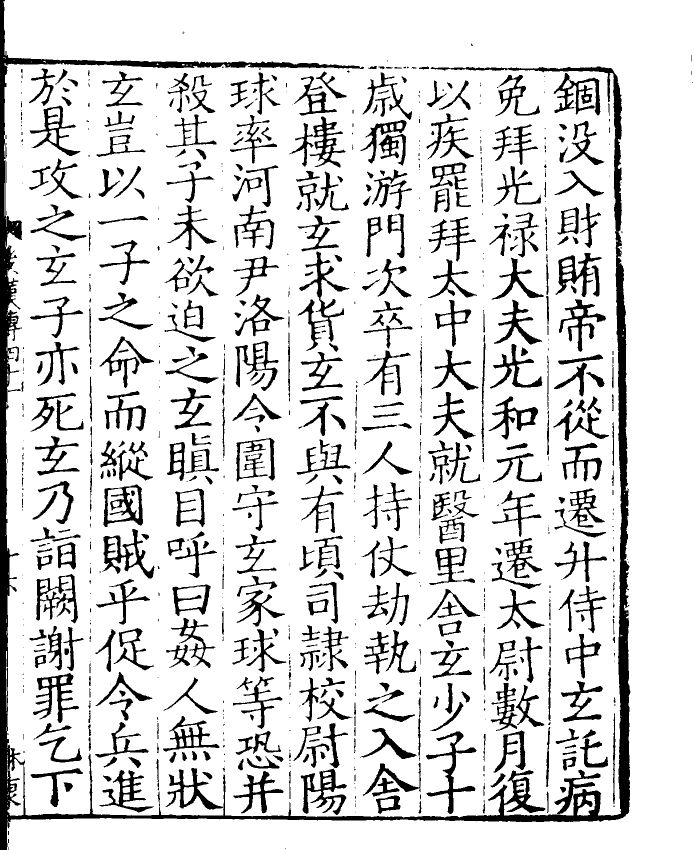 錮没入財賄帝不從而遷升侍中玄託病
免拜光禄大夫光和元年遷太尉數月復
以疾罷拜太中大夫就醫里舍玄少子十
歳獨游門次卒有三人持仗劫執之入舍
登樓就玄求貨玄不與有頃司隷校尉陽
球率河南尹洛陽令圍守玄家球等恐并
殺其子未欲迫之玄瞋目呼曰姦人無狀
玄豈以一子之命而縱國賊乎促令兵進
於是攻之玄子亦死玄乃詣闕謝罪乞下
漢傳四十一